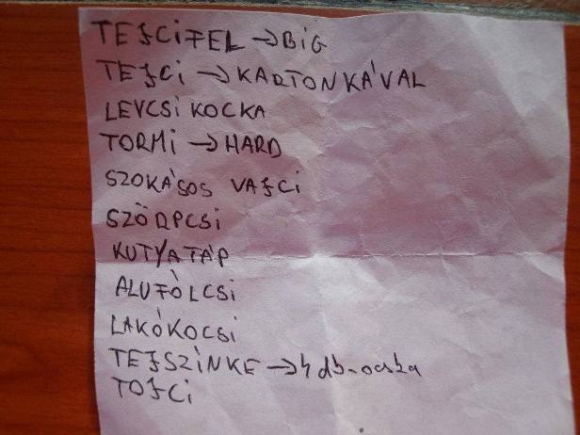 TEJCIFEL → BIG
TEJCI → KARTONKÁVAL
LEVCSI KOCKA
TORMI → HARD
SZOKÁSOS VAJCI
SZÖRPCSI
KUTYATÁP
ALUFÓLCSI
LAKÓKOCSI
TEJSZÍNKE → 4 db-ocska
TOJCI